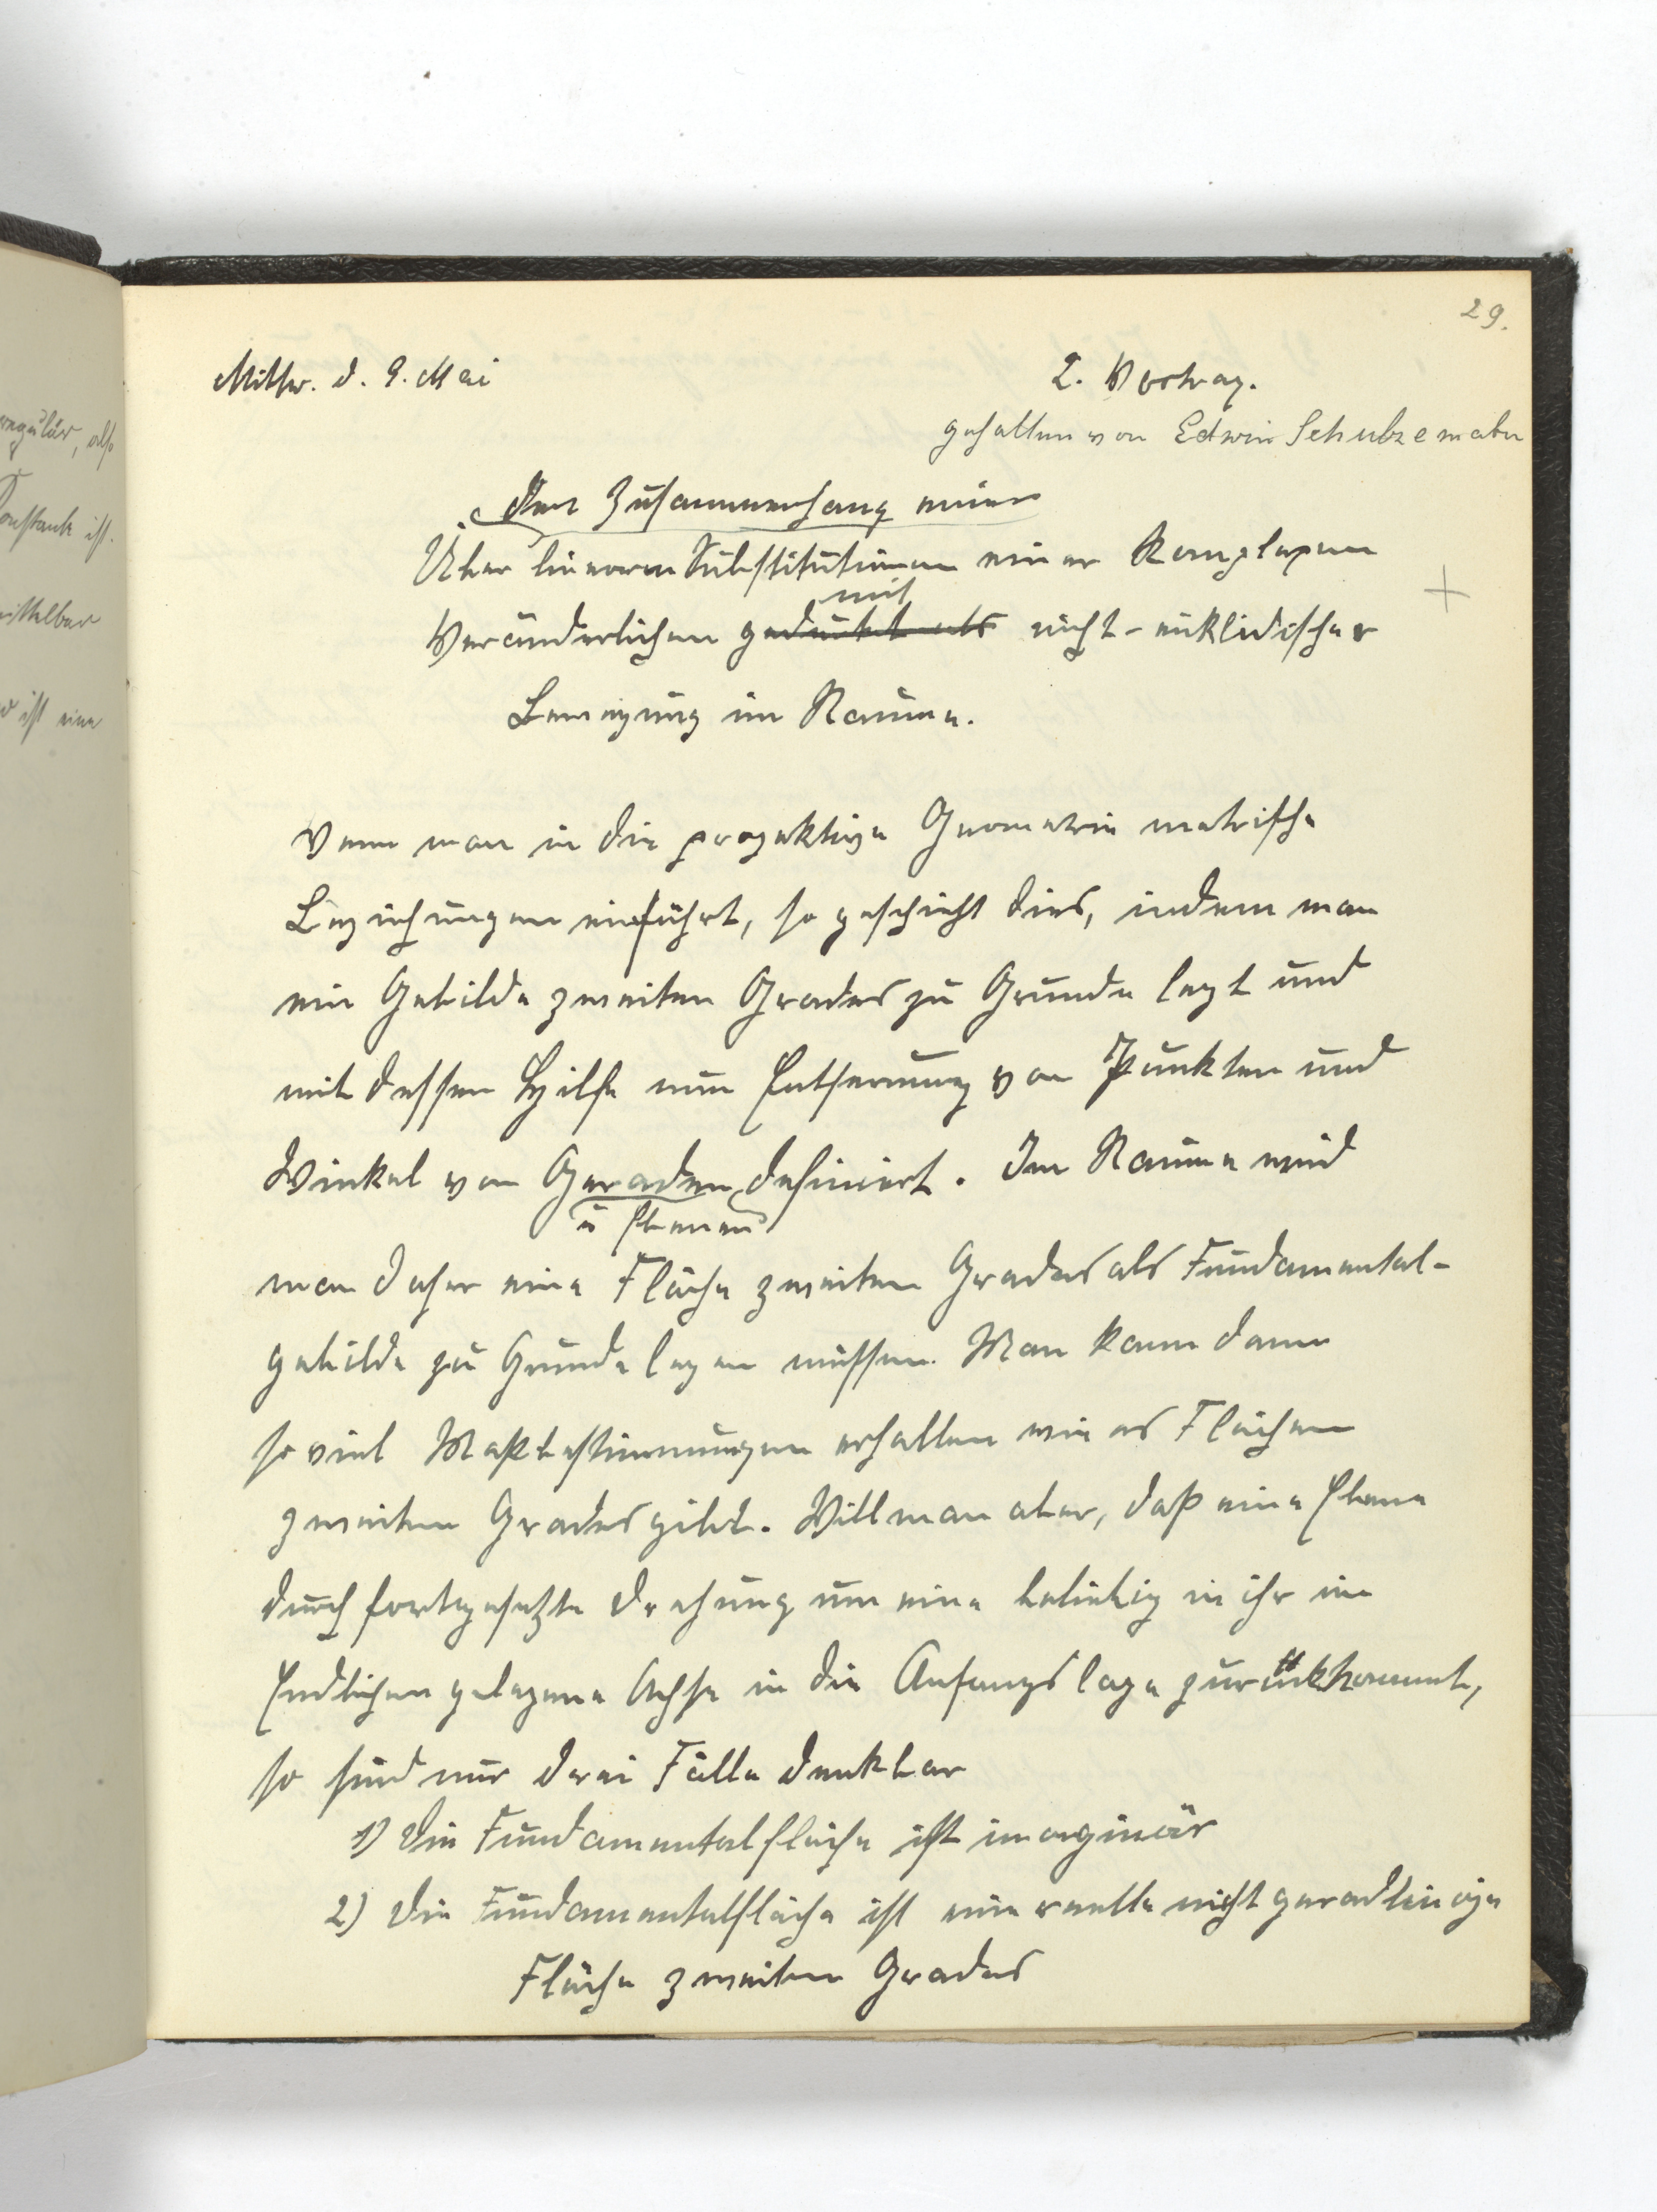 29.
Mittw. d. 9. Mai
2. Vortrag.
gehalten von Edwin
Der Zusammenhang einer
Über linearen Substitutionen einer komplexen
mit
Veränderlichen gedeutet als nicht-euklidischer
Bewegung im Raume.
Wenn man in die projektive Geometrie metrische
Beziehungen einführt, so geschieht dies, indem man
ein Gebilde zweiten Grades zu Grunde legt und
mit dessen Hilfe nun Entfernung von Punkten und
Winkel von Geraden definiert. Im Raume wird
u Ebenen
man daher eine Fläche zweiten Grades als Fundamental-
gebilde zu Grunde legen müssen. Man kann dann
so viel Maßbestimmungen erhalten wie es Flächen
zweiten Grades gibt. Will man aber, daß eine Ebene
durch fortgesetzte Drehung um eine beliebig in ihr im
Endlichen gelegene Achse in die Anfangslage zurückkommt,
so sind nur drei Fälle denkbar
1) Die Fundamentalfläche ist imaginär
2) Die Fundamentalfläche ist eine reelle nicht geradlinige
Fläche zweiten Grades